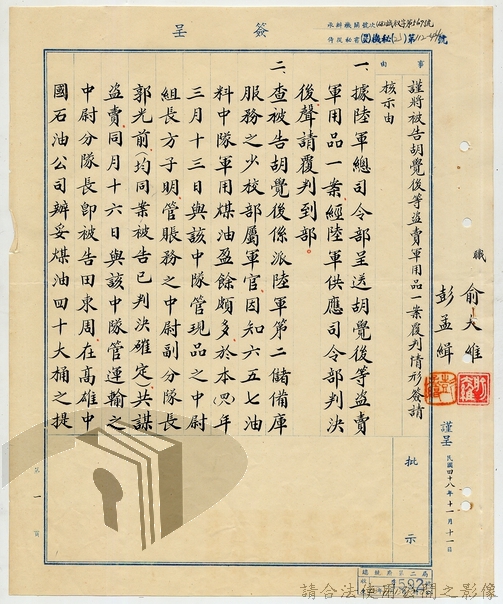 簽呈
事由
謹將被告胡覺後等盜賣軍用品一案覆判情形簽請
核示由
職
俞大維
彭孟緝
謹呈
民國四十八年十一月十一日
一、據陸軍總司令部呈送胡覺後等盜賣
軍用品一案經陸軍供應司令部判決
後聲請覆判到部。
二、查被告胡覺後係派陸軍第二儲備庫
服務之少校部屬軍官因知六五七油
料中隊軍用煤油盈餘頗多於本(四八)年
三月十三日與該中隊管現品之中尉
組長方子明管賬務之中尉副分隊長
郭光前(均同業被告已判決確定)共謀
盜賣同月十六日與該中隊管運輸之
中尉分隊長即被告田東周在高雄中
國石油公司辦妥煤油四十大桶之提
批示
第一頁
總統府第二局
請合法使用公開之影像